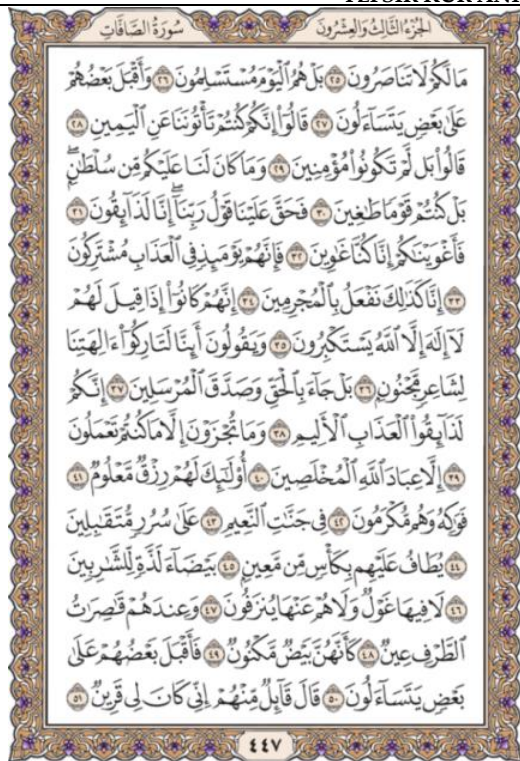 الجُزْءُ الثَّالِثُ وَالعِشْرُونَ سُورَةُ الصَّافَّاتِ
مَا لَكُمْ لَا تَنَاصَرُونَ ۝٢٥ بَلْ هُمُ ٱلْيَوْمَ مُسْتَسْلِمُونَ ۝٢٦ وَأَقْبَلَ بَعْضُهُمْ
عَلَىٰ بَعْضٍ يَتَسَآءَلُونَ ۝٢٧ قَالُوٓا۟ إِنَّكُمْ كُنتُمْ تَأْتُونَنَا عَنِ ٱلْيَمِينِ ۝٢٨
قَالُوا۟ بَل لَّمْ تَكُونُوا۟ مُؤْمِنِينَ ۝٢٩ وَمَا كَانَ لَنَا عَلَيْكُم مِّن سُلْطَٰنٍۭ ۖ
بَلْ كُنتُمْ قَوْمًا طَٰغِينَ ۝٣٠ فَحَقَّ عَلَيْنَا قَوْلُ رَبِّنَآ ۖ إِنَّا لَذَآئِقُونَ ۝٣١
فَأَغْوَيْنَٰكُمْ إِنَّا كُنَّا غَٰوِينَ ۝٣٢ فَإِنَّهُمْ يَوْمَئِذٍ فِى ٱلْعَذَابِ مُشْتَرِكُونَ
۝٣٣ إِنَّا كَذَٰلِكَ نَفْعَلُ بِٱلْمُجْرِمِينَ ۝٣٤ إِنَّهُمْ كَانُوٓا۟ إِذَا قِيلَ لَهُمْ
لَآ إِلَٰهَ إِلَّا ٱللَّهُ يَسْتَكْبِرُونَ ۝٣٥ وَيَقُولُونَ أَئِنَّا لَتَارِكُوٓا۟ ءَالِهَتِنَا
لِشَاعِرٍ مَّجْنُونٍۭ ۝٣٦ بَلْ جَآءَ بِٱلْحَقِّ وَصَدَّقَ ٱلْمُرْسَلِينَ ۝٣٧ إِنَّكُمْ
لَذَآئِقُوا۟ ٱلْعَذَابِ ٱلْأَلِيمِ ۝٣٨ وَمَا تُجْزَوْنَ إِلَّا مَا كُنتُمْ تَعْمَلُونَ
۝٣٩ إِلَّا عِبَادَ ٱللَّهِ ٱلْمُخْلَصِينَ ۝٤٠ أُو۟لَٰٓئِكَ لَهُمْ رِزْقٌ مَّعْلُومٌ ۝٤١
فَوَٰكِهُ ۖ وَهُم مُّكْرَمُونَ ۝٤٢ فِى جَنَّٰتِ ٱلنَّعِيمِ ۝٤٣ عَلَىٰ سُرُرٍ مُّتَقَٰبِلِينَ
۝٤٤ يُطَافُ عَلَيْهِم بِكَأْسٍ مِّن مَّعِينٍۭ ۝٤٥ بَيْضَآءَ لَذَّةٍ لِّلشَّٰرِبِينَ
۝٤٦ لَا فِيهَا غَوْلٌ وَلَا هُمْ عَنْهَا يُنزَفُونَ ۝٤٧ وَعِندَهُمْ قَٰصِرَٰتُ
ٱلطَّرْفِ عِينٌ ۝٤٨ كَأَنَّهُنَّ بَيْضٌ مَّكْنُونٌ ۝٤٩ فَأَقْبَلَ بَعْضُهُمْ عَلَىٰ
بَعْضٍ يَتَسَآءَلُونَ ۝٥٠ قَالَ قَآئِلٌ مِّنْهُمْ إِنِّى كَانَ لِى قَرِينٌ ۝٥١
٤٤٧